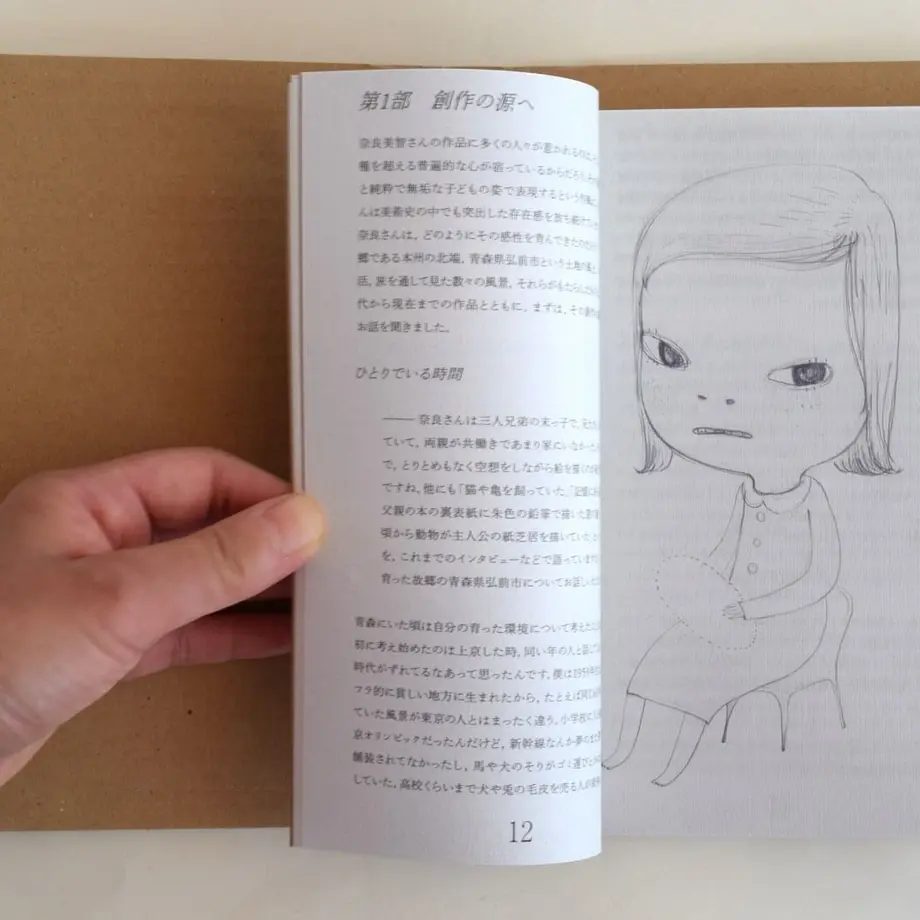 第1部 創作の源へ
奈良美智さんの作品に多くの人々が惹かれるのは、
種を超える普遍的な心が宿っているからだろう。
と純粋で無垢な子どもの姿で表現するという
んは美術史の中でも突出した存在感を放ち続けて
奈良さんは、どのようにその感性を育んできたのだ
郷である本州の北端、青森県弘前市という土地の
活、旅を通して見た数々の風景、それらがもたらした
代から現在までの作品とともに、まずは、その創作
お話を聞きました。
ひとりでいる時間
―― 奈良さんは三人兄弟の末っ子で、
ていて、両親が共働きであまり家にいなかった
で、とりとめもなく空想をしながら絵を描くのが
ですね。他にも「猫や亀を飼っていた」「記憶に
父親の本の裏表紙に朱色の鉛筆で描いた
頃から動物が主人公の紙芝居を描いていた」
を、これまでのインタビューなどで語っています
育った故郷の青森県弘前市についてお話し
青森にいた頃は自分の育った環境について考えた
初に考え始めたのは上京した時、同い年の人と話して
時代がずれてるなあって思ったんです。僕は1959年
フラ的に貧しい地方に生まれたから、たとえば
ていた風景が東京の人とはまったく違う。小学校に
京オリンピックだったんだけど、新幹線なんか夢のまた
舗装されてなかったし、馬や犬のそりがゴミ運び
していた。高校くらいまで犬や兎の毛皮を売る人が
12